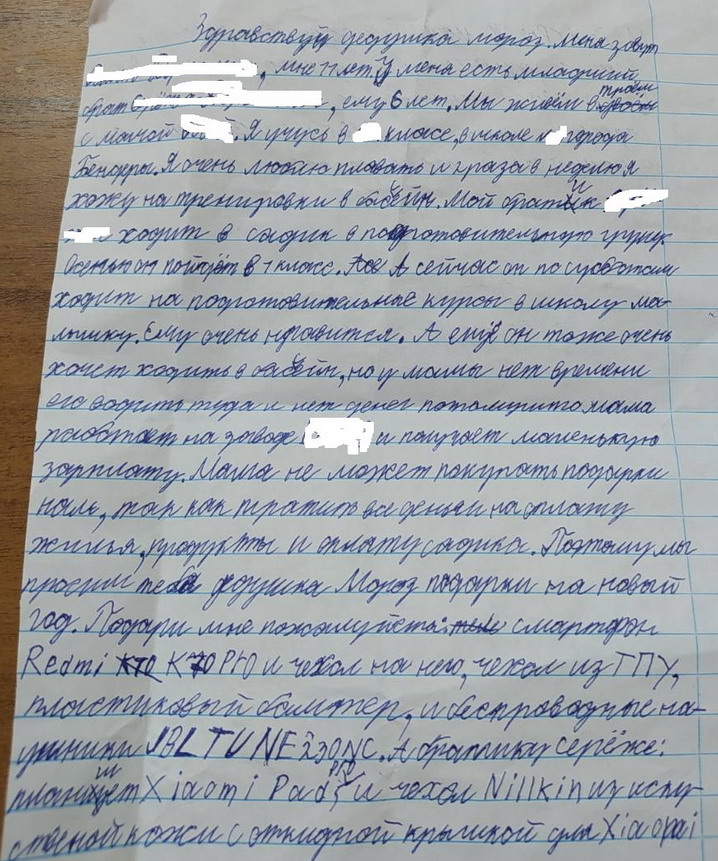 Здравствуй дедушка мороз. Меня зовут
, мне 11 лет У меня есть младший
брат , ему 6 лет. Мы живём втроём
с мамой . Я учусь в класс, в школе города
Бендеры. Я очень люблю плавать и 2 раза в неделю я
хожу на тренировки в басейн. Мой братик
ходит в садик в подготовительную групу.
Осенью он пойдёт в 1 класс. А сейчас он по субботам
ходит на подготовительные курсы в школу ма-
льшику. Ему очень нравится. А ещё он тоже очень
хочет ходить в басейн, но у мамы нет времени
его водить туда и нет денег потомушто мама
работает на заводе и получает маленькую
зарплату. Мама не может покупать подарки
нам, так как тратит все деньги на оплату
жилья, продукты и оплату садика. Поэтому мы
просим тебя дедушка Мороз подарки на новый
год. Подари мне пожалуйста: смартфон
Redmi K70 Pro и чехол на него, чехол из ТПУ,
пластиковый бампер, и беспроводные на-
ушники JBL TUNE 230NC. А братику серёже:
планшет Xiaomi Pad и чехол Nillkin из иску-
ственой кожи с откидной крышкой для